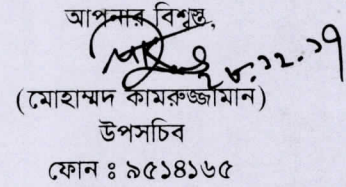 আপনার বিশ্বস্ত,
(মোহাম্মদ কামরুজ্জামান)
উপসচিব
ফোন ঃ ৯৫১৪১৬৫